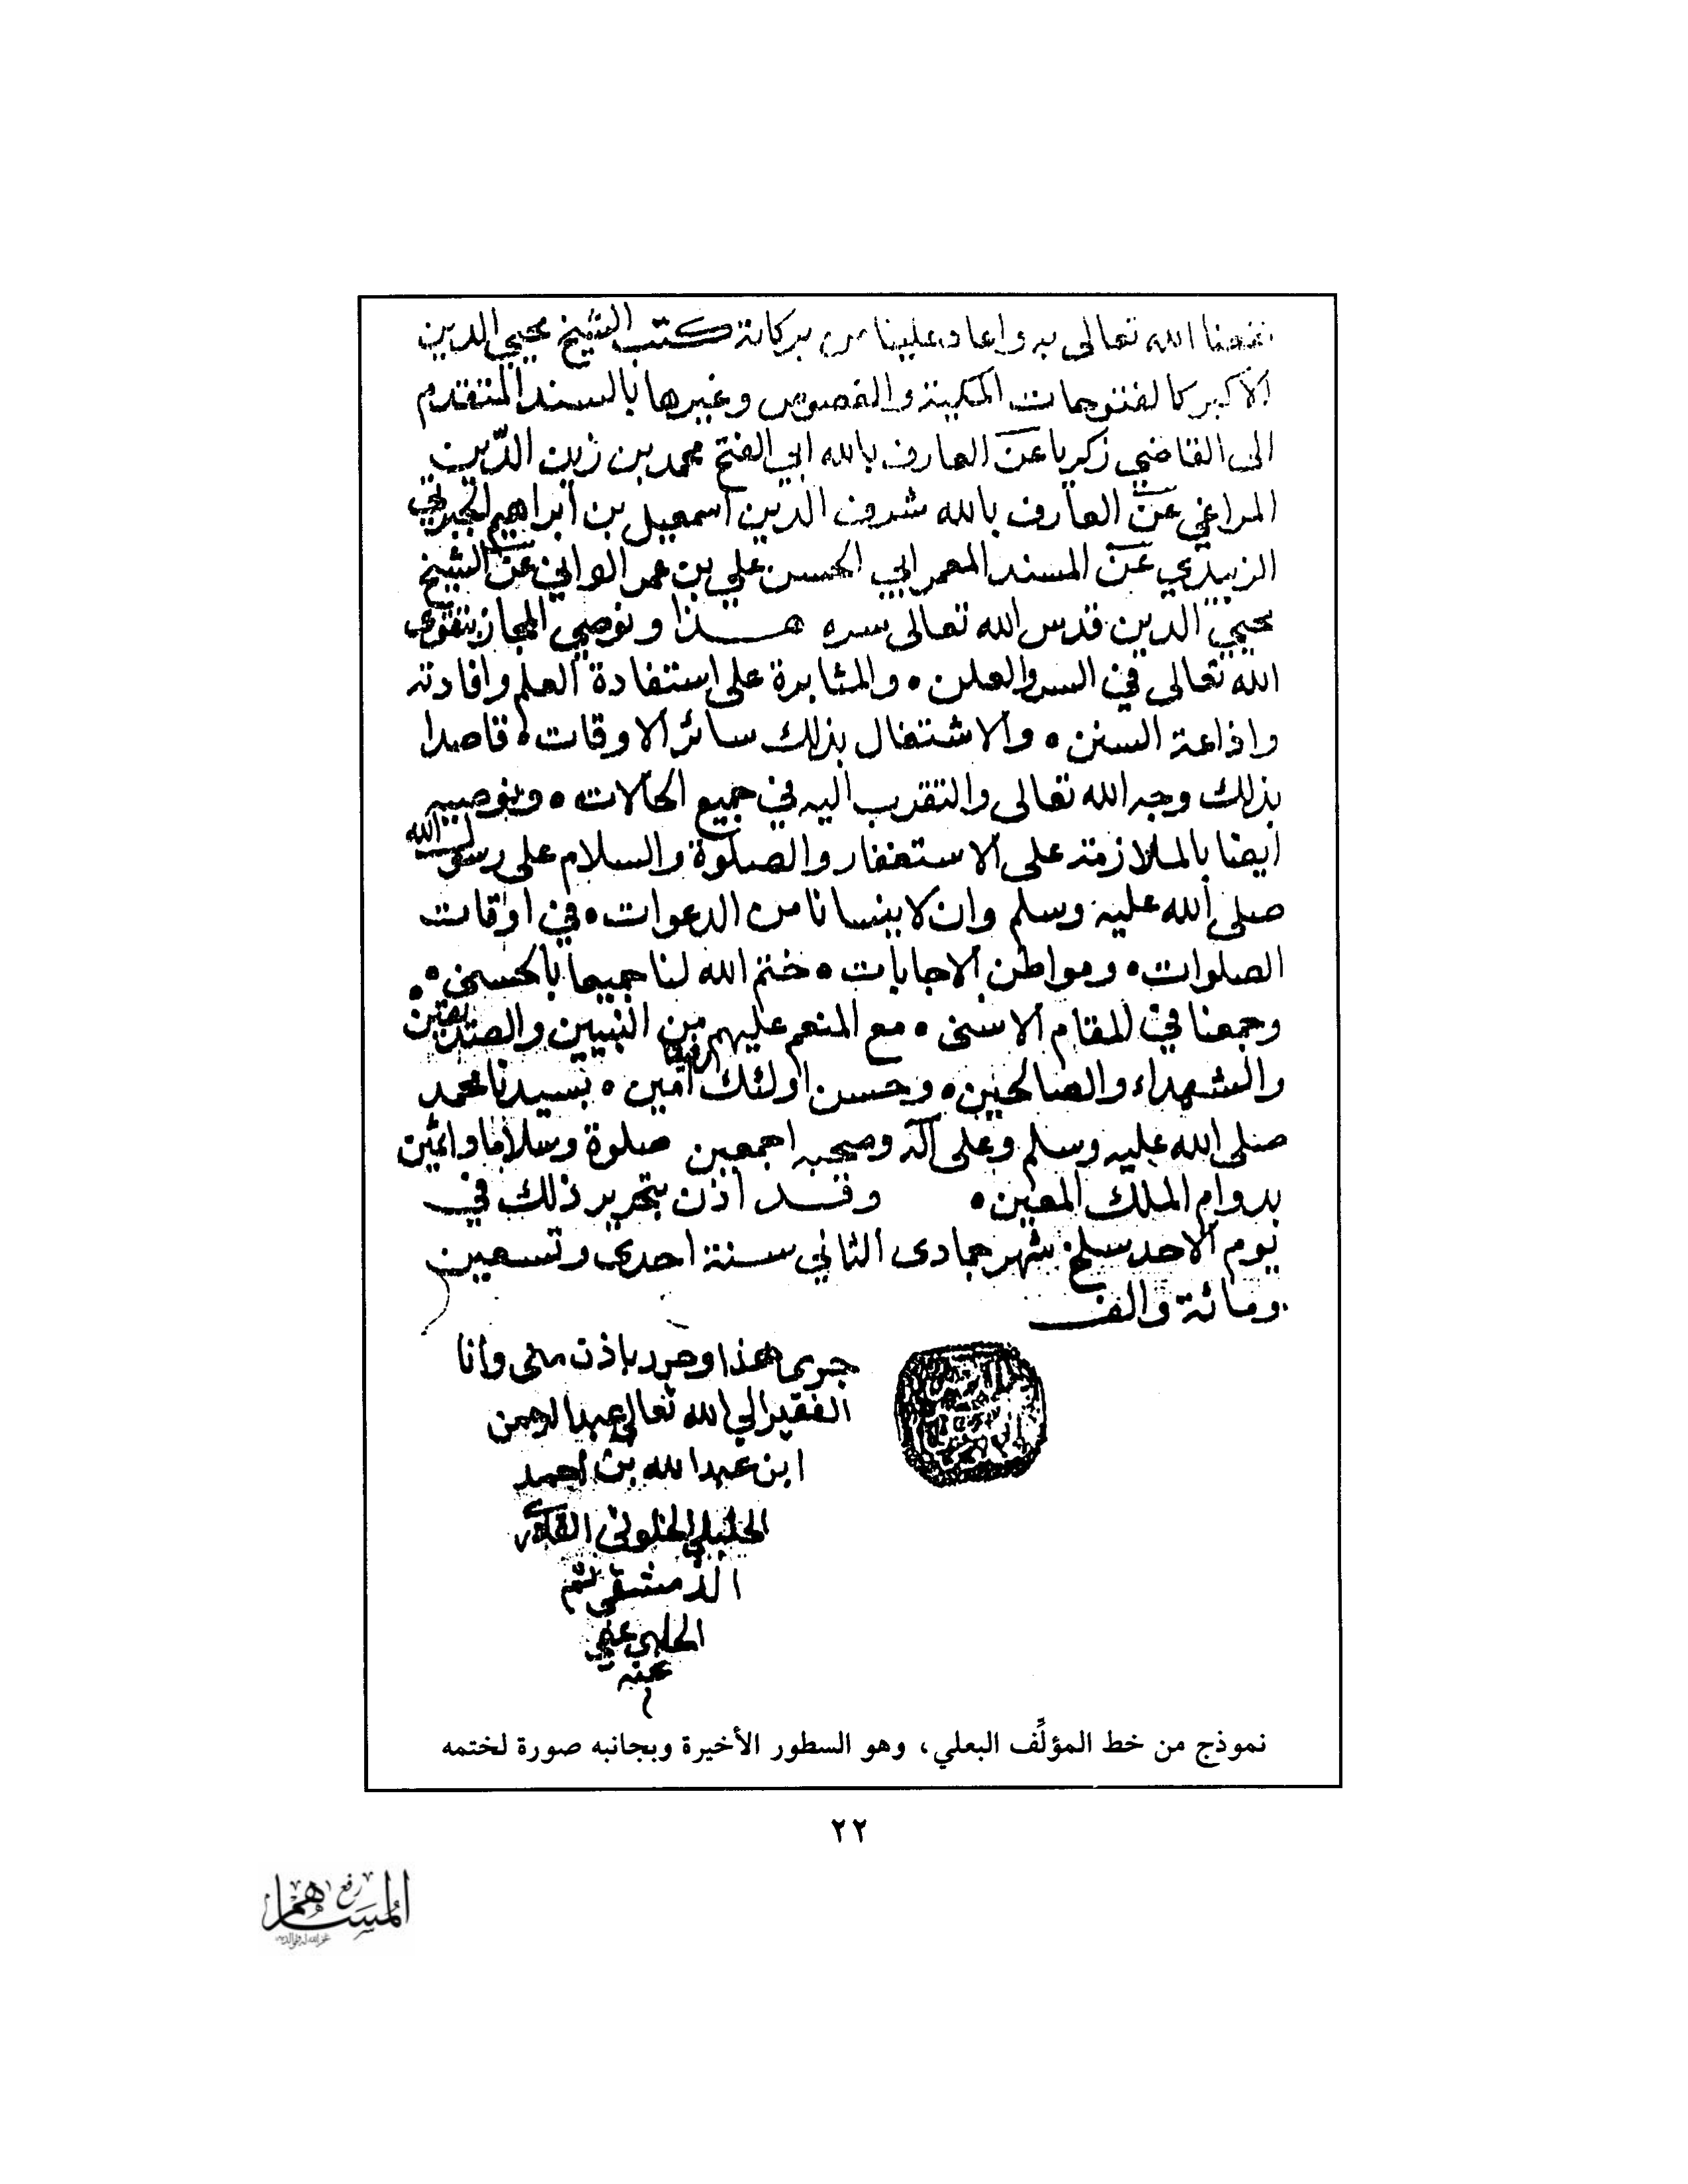 نفعنا الله تعالى به واعاد علينا من بركاته كتب الشيخ محيي الدين
الاكبر كالفتوحات المكية والفصوص وغيرها بالسند المتقدم
الى القاضي زكريا عن العارف بالله ابي الفتح محمد بن زين الدين
المراغي عن العارف بالله شرف الدين اسمعيل بن ابراهيم الجبرتي
الزبيدي عن المسند المعمر ابي الحسن علي بن عمر الواني عن الشيخ
محيي الدين قدس الله تعالى سره هذا ونوصي المجاز بتقوى
الله تعالى في السر والعلن ٥ والمثابرة على استفادة العلم وافادته
واذاعة السنن ٥ والاشتغال بذلك سائر الاوقات ٥ قاصدا
بذلك وجه الله تعالى والتقرب اليه في جميع الحالات ٥ ونوصيه
ايضا بالملازمة على الاستغفار والصلوة والسلام على رسول الله
صلى الله عليه وسلم وان لا ينسانا من الدعوات ٥ في اوقات
الصلوات ٥ ومواطن الاجابات ٥ ختم الله لنا جميعا بالحسنى ٥
وجمعنا في المقام الاسنى ٥ مع المنعم عليهم من النبيين والصديقين
والشهداء والصالحين ٥ وحسن اولئك رفيقا امين ٥ بسيدنا محمد
صلى الله عليه وسلم وعلى آله وصحبه اجمعين صلوة وسلاما دائمين
بدوام الملك المعين ٥ وقد اذن بتحرير ذلك في
يوم الاحد سلخ شهر جمادى الثاني سنة احدى وتسعين
ومائة والف
جرى هذا وحرر باذن مني وانا
الفقير الى الله تعالى عبد الرحمن
ابن عبد الله بن احمد
الحنبلي الخلوتي القادري
الدمشقي ثم
الحلبي عفي
عنه
نموذج من خط المؤلِّف البعلي، وهو السطور الأخيرة وبجانبه صورة لختمه
٢٢
رفع
المساهم
غفر الله له ولوالديه